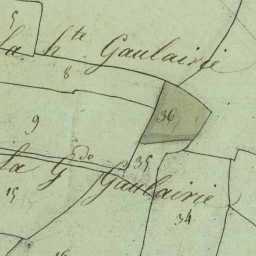 5
la h.te Gaulairie
8
36
9
la G.de Gaulairie
35
15
34
16